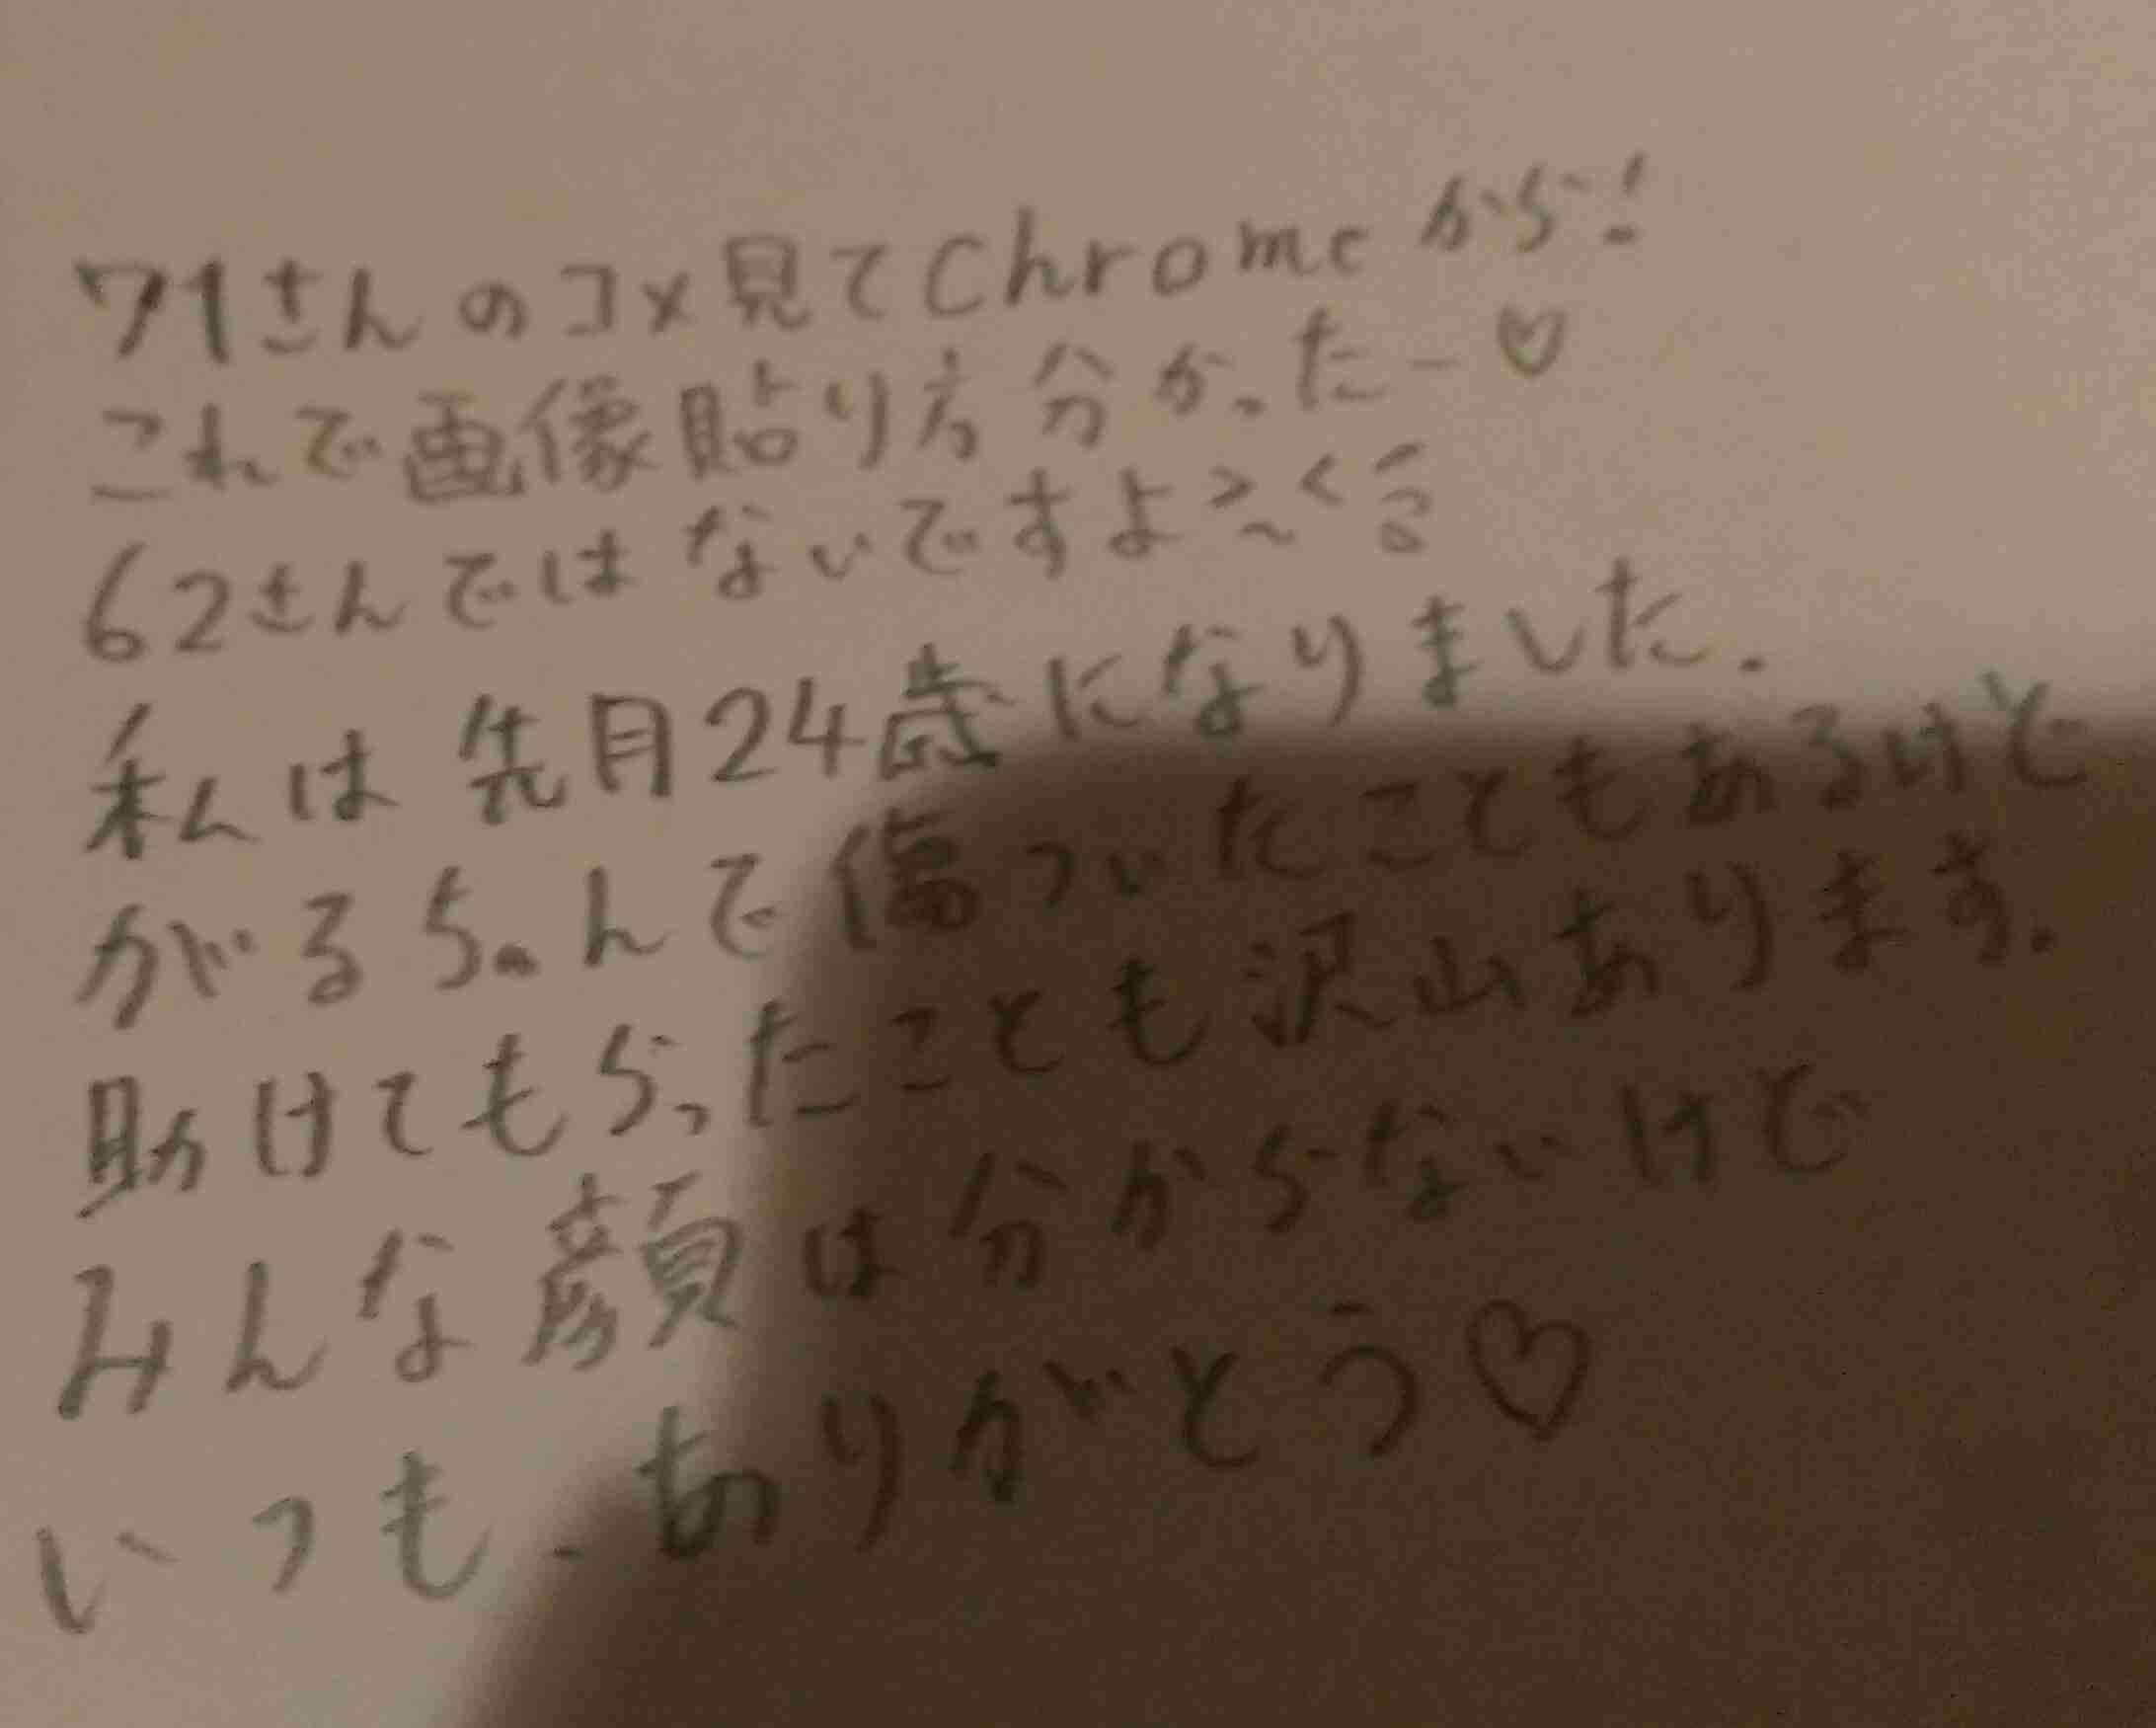 71さんのコメ見てChromeから!
これで画像貼り方分かったー♡
62さんではないですよ
私は先月24歳になりました.
がるちゃんで傷ついたこともあるけど
助けてもらったことも沢山あります.
みんな顔は分からないけど
いつもありがとう♡